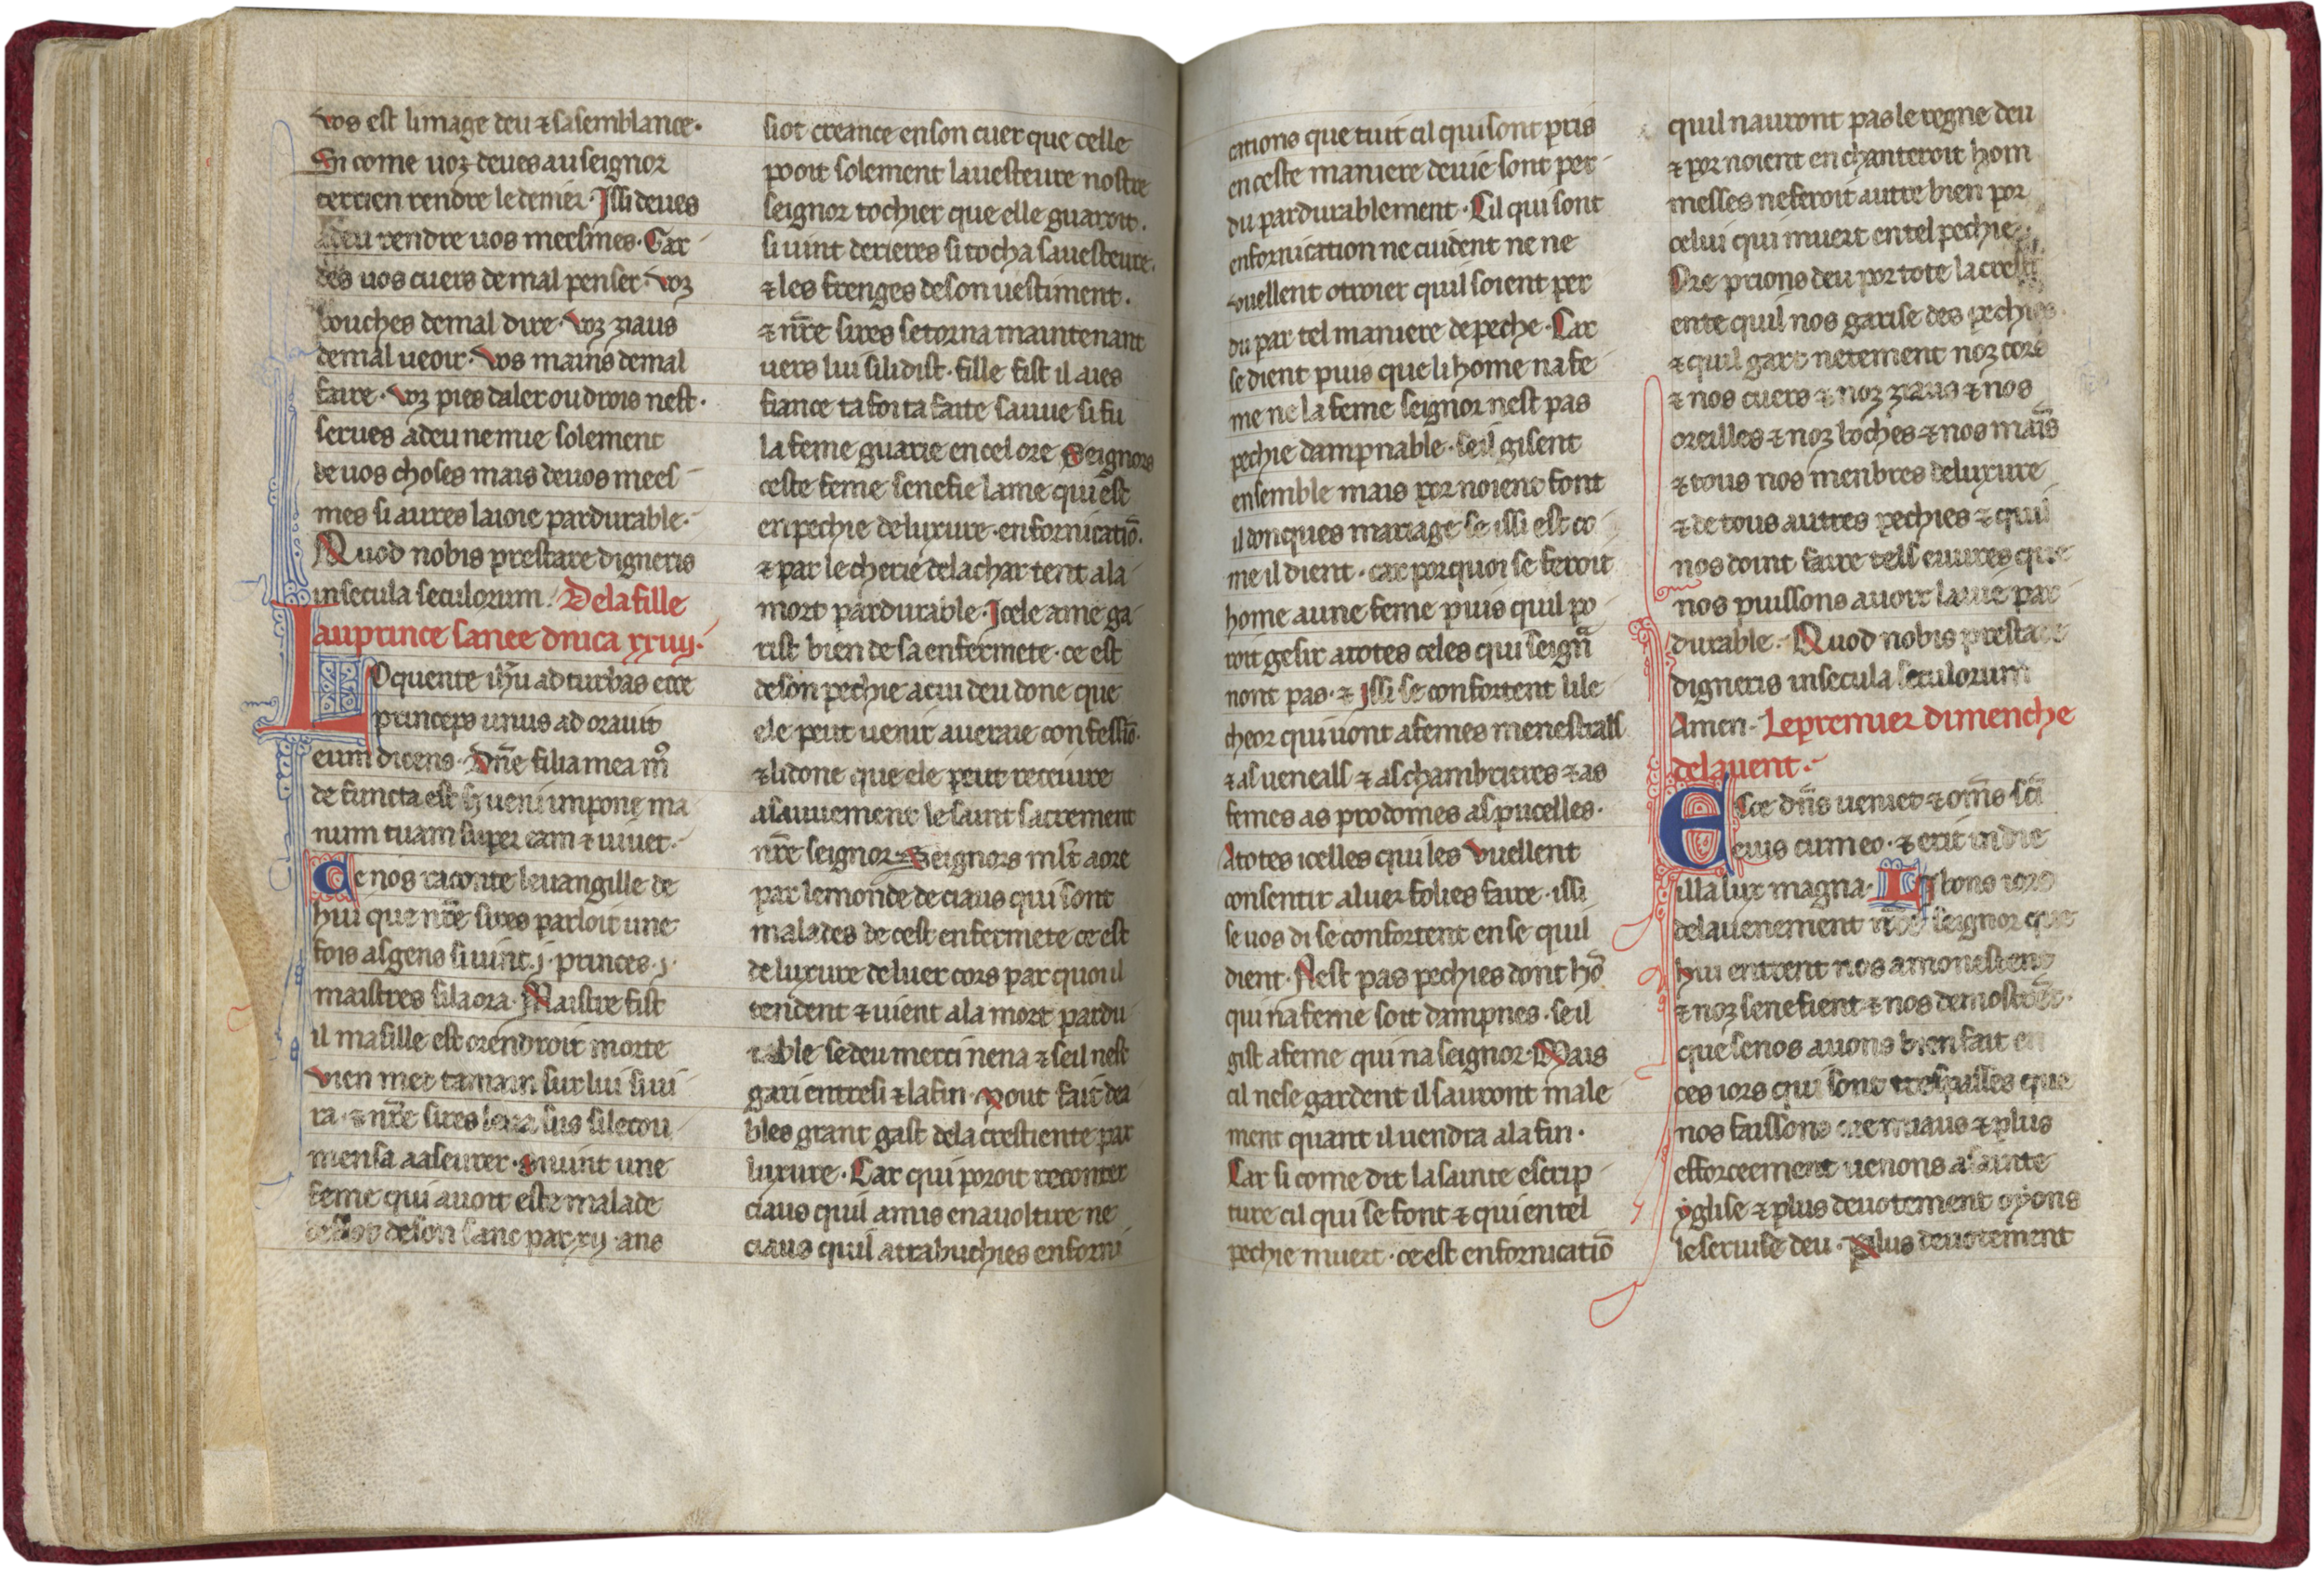 vos est limage deu ⁊ sa semblance·
Si come uoz deues au seignor
terrien rendre le denier· Issi deues
a deu rendre uos meesmes· Gar
des uos cuers de mal penser· voz
bouches de mal dire· voz ziaus
de mal ueoir· vos mains de mal
faire· voz pies daler ou drois nest·
serues a deu ne mie solement
de uos choses mais de uos mees
mes si aures la ioie pardurable·
Quod nobis prestare digneris
in secula seculorum· De la fille
au prince sanee dnica xxiiij·
Loquente ihu ad turbas ecce
princeps unus adorauit
eum dicens· Dn̄e filia mea m̊
defuncta est ueni impone ma
num tuam super eam ⁊ uiuet·
Ce nos raconte leuangille de
hui que nr̄e sires parloit une
fois as gens si uint ·j· princes ·j·
maistres si la ora· Maistre fist
il ma fille est orendroit morte
vien met ta main sur lui si ui
ra· ⁊ nr̄e sires leua sus si le cou
mensa a aseurer· Si uint une
feme qui auoit este malade
de son sanc par xij ans
si ot creance en son cuer que celle
pooit solement la uesteure nostre
seignor tochier que elle guaroit·
si uint derieres si tocha sa uesteure·
⁊ les frenges de son uestiment·
⁊ nr̄e sires se torna maintenant
uers lui si li dist· fille fist il aies
fiance ta foi ta faite sauue si fu
la feme guarie en cel ore Seignors
ceste feme senefie lame qui est
en pechie de luxure· en fornicatiō·
⁊ par lecherie de la char tent a la
mort pardurable· Icele ame ga
rist bien de sa enfermete· ce est
de son pechie a cui deu done que
ele peut uenir a ueraie confessiō·
⁊ li done que ele peut receiure
a sauuement le saint sacrement
nr̄e seignor· Seignors mlt̄ a ore
par le monde de ciaus qui sont
malades de cest enfermete ce est
de luxure de luer cors par quoi il
tendent ⁊ uient a la mort pardu
rable se deu merci nena ⁊ seil nest
gari entresi ⁊ la fin· Mout fait dea
bles grant gast de la crestiente par
luxure· Car qui poroit reconter
ciaus quil a mis en auoltire ne
ciaus quil a trabuchies en forni
cations que tuit cil qui sont pris
en ceste maniere de uie sont per
du pardurablement· Cil qui sont
en fornication ne cuident ne ne
vuellent otroier quil soient per
du par tel maniere de peche· Car
se dient puis que li home na fe
me ne la feme seignor nest pas
pechie dampnable· seil gisent
ensemble mais por noient font
il donques mariage se issi est co
me il dient· car por quoi se feroit
home a une feme puis quil po
roit gesir a totes celes qui seignr̄
nont pas· ⁊ Issi se confortent li le
cheor qui uont a femes menestrals
⁊ as ueneals ⁊ as chambrieres ⁊ as
femes as prodomes as pucelles·
A totes icelles qui les vuellent
consentir a luer folies faire· issi
se uos di se confortent en se quil
dient· Nest pas pechies dont hō
qui na feme soit dampnes· se il
gist a feme qui na seignor· Mais
cil ne se gardent il sauront male
ment quant il uendra a la fin·
Car si come dit la sainte escrip
ture cil qui se font ⁊ qui en tel
pechie muert· ce est en fornicatiō
quil nauront pas le regne deu
⁊ por noient en chanteroit hom
messes ne feroit autre bien por
celui qui muert en tel pechie·
Ore prions deu por tote la cresti
ente quil nos garise des pechies
⁊ quil gart netement noz cors
⁊ nos cuers ⁊ noz ziaus ⁊ nos
oreilles ⁊ noz boches ⁊ nos maīs
⁊ tous nos menbres de luxure
⁊ de tous autres pechies ⁊ quil
nos doint faire tels euures que
nos puissons auoir la uie par
durable· Quod nobis prestare
digneris in secula seculorum
Amen· Le premier dimenche
de lauent·
Ecce dn̄s ueniet ⁊ om̄s sc̄i
eius cum eo· ⁊ erit in die
illa lux magna· Li bons iors
de lauenement nr̄e seignor que
hui entrent nos amonestent
⁊ noz senefient ⁊ nos demostrēt·
que se nos auons bien fait en
ces iors qui sont trespasses que
nos faissons miaus ⁊ plus
efforceement uenons a sainte
yglise ⁊ plus deuotement oyons
le seruise deu· Plus deuotement